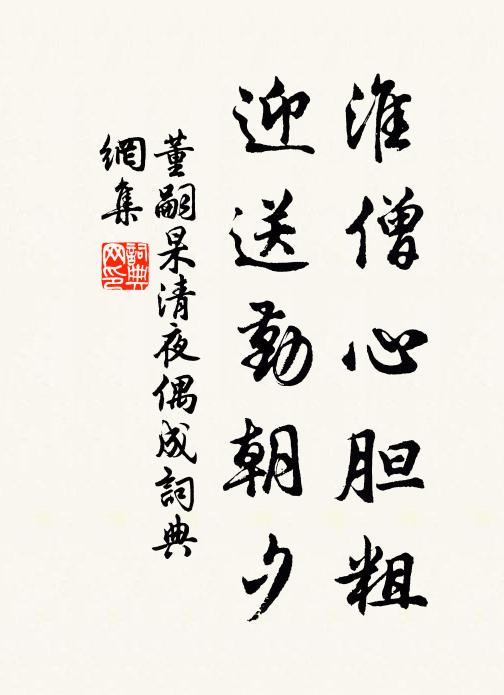 淮僧心胆粗
迎送勤朝夕
董嗣杲清夜偶成詞典
網集
詞典
网印